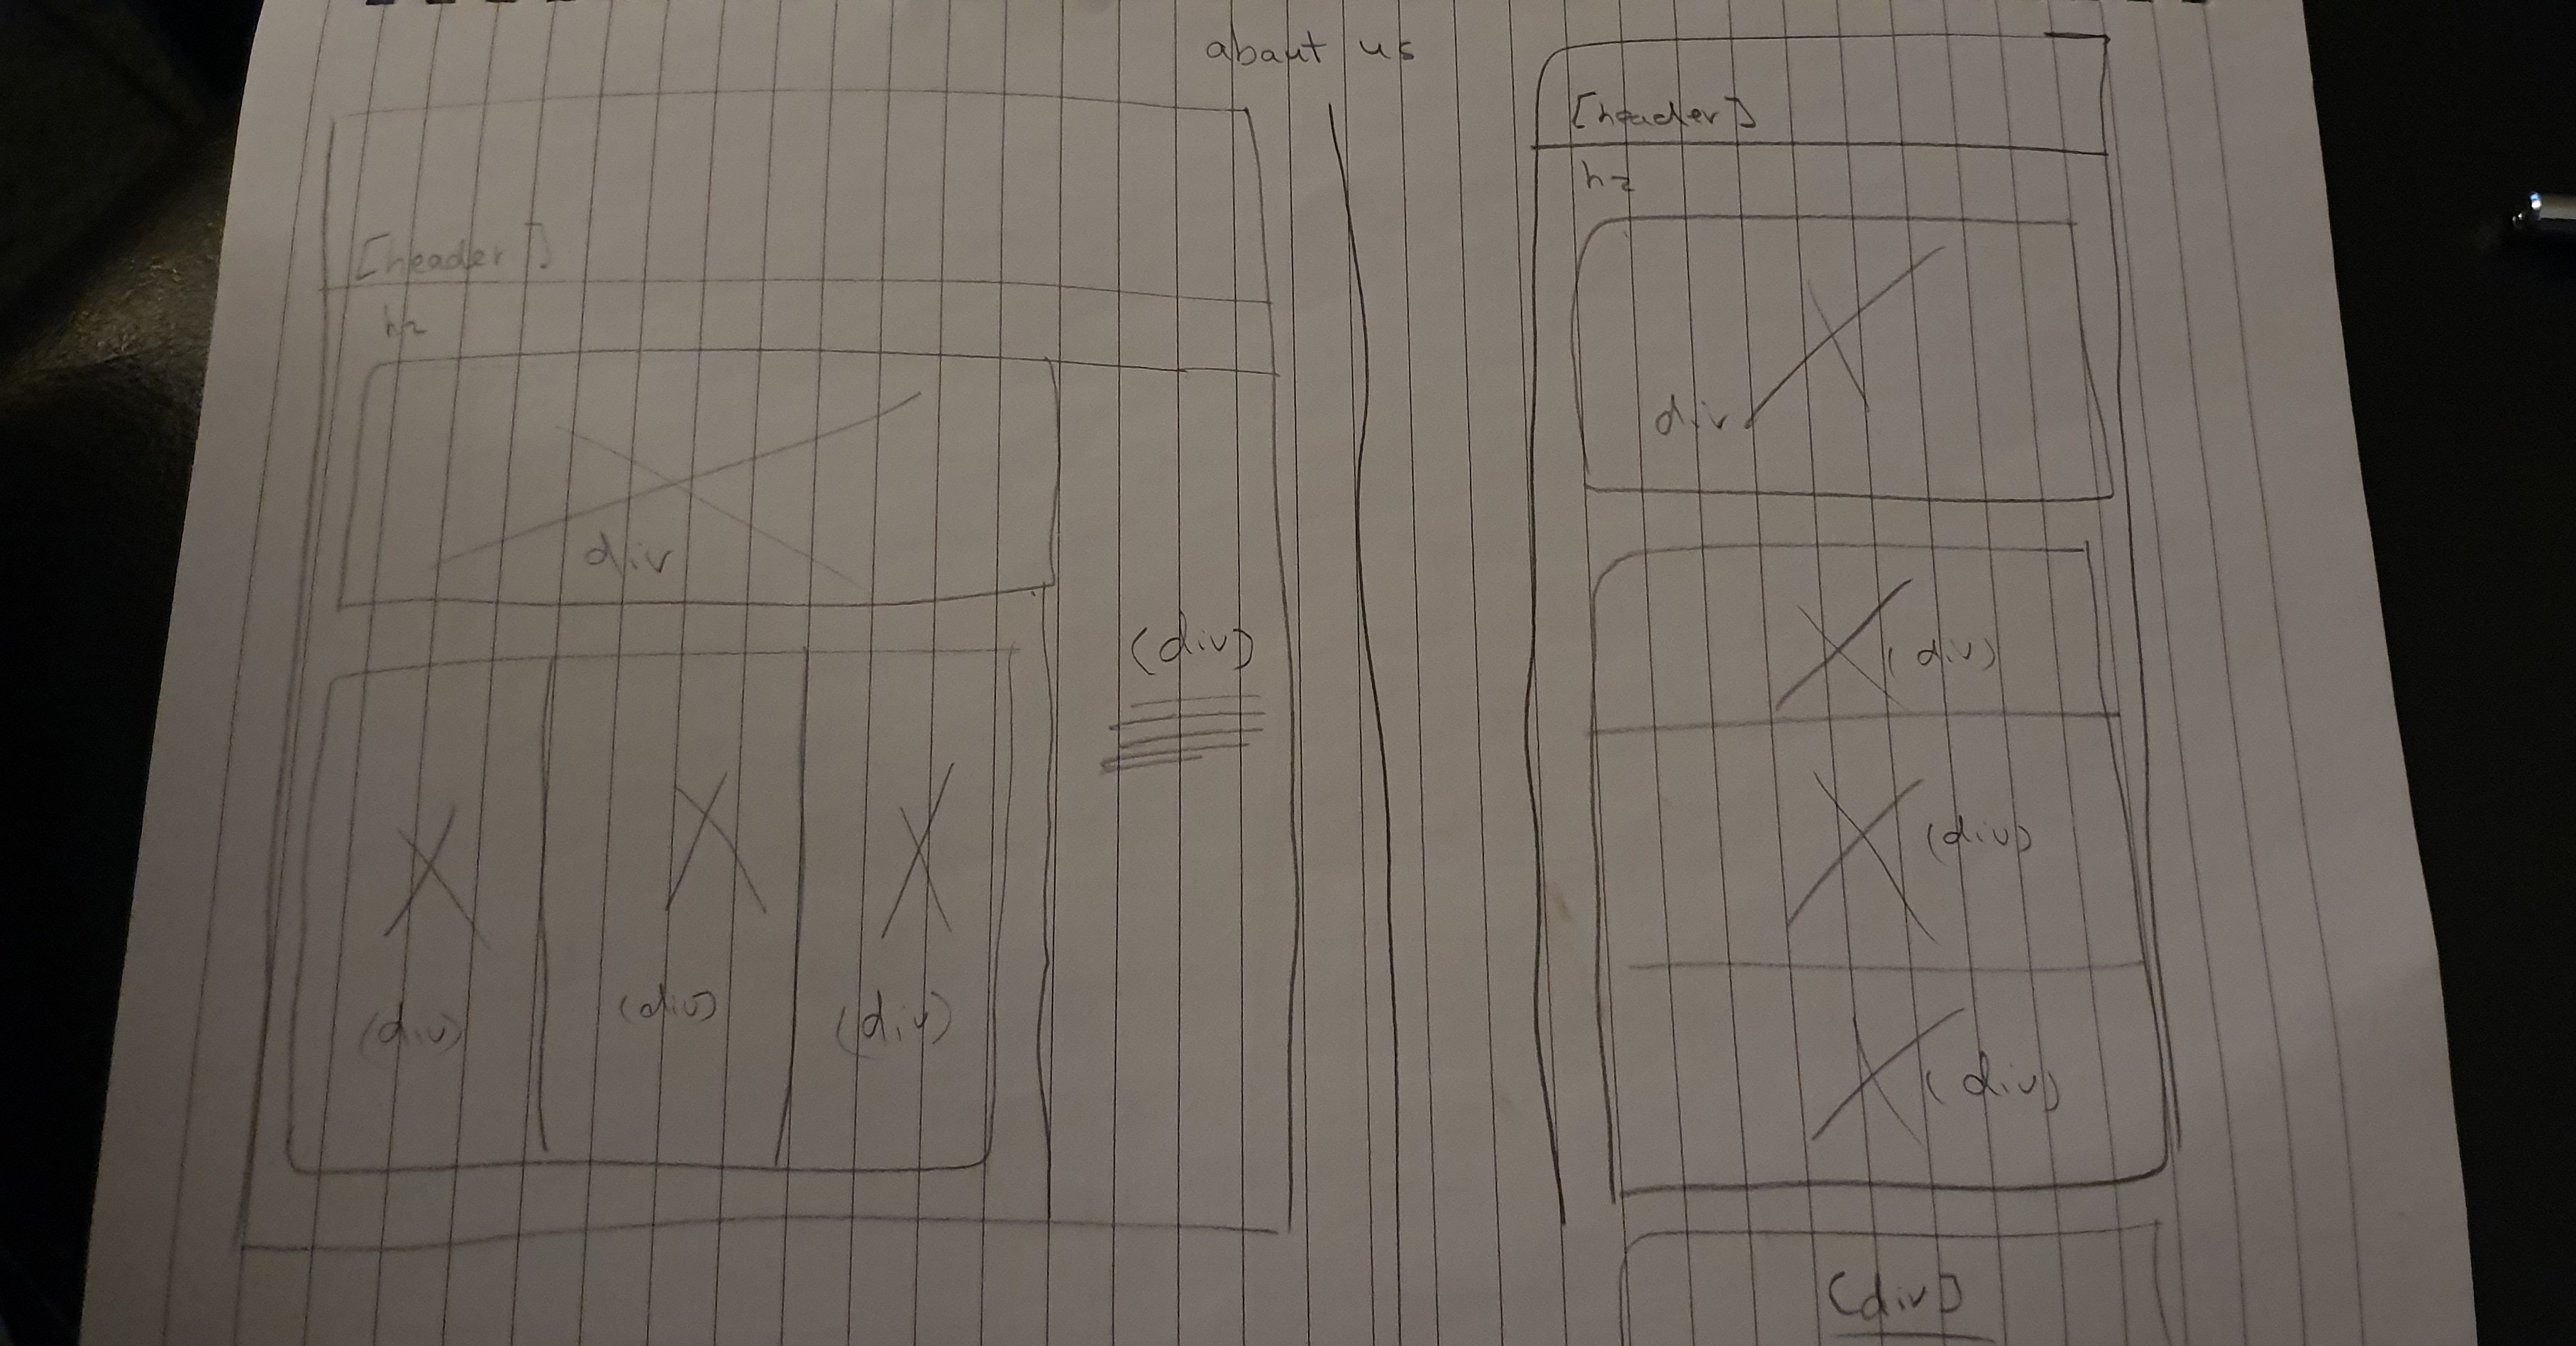 abaut us
[header]
h2
div
(div)
(div)
(div)
(div)
[header]
h2
div
(div)
(div)
(div)
[div]